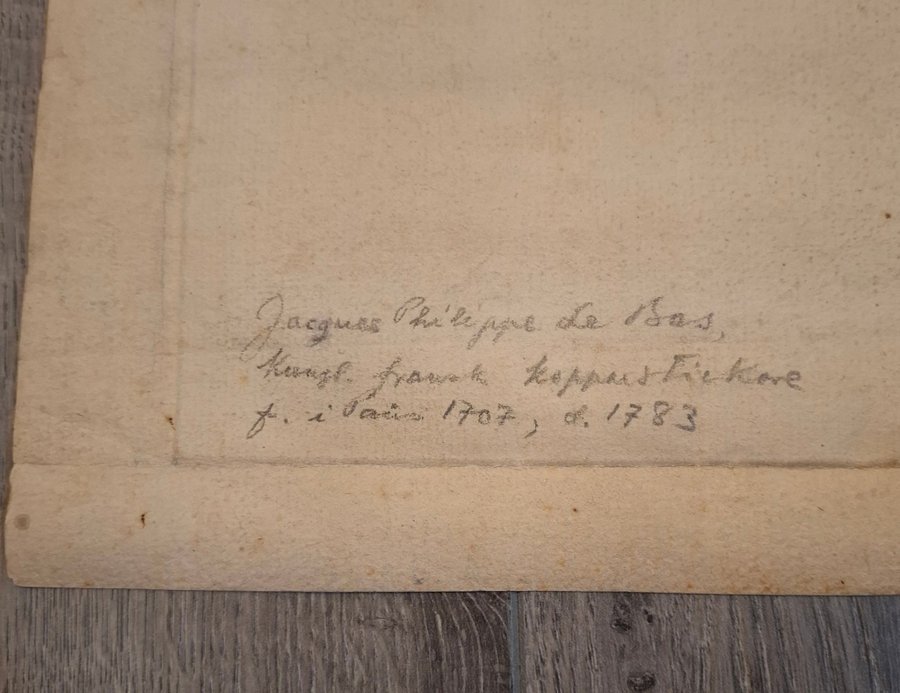 Jacques Philippe Le Bas,
Kungl. fransk kopparstickare
f. i Paris 1707, d. 1783